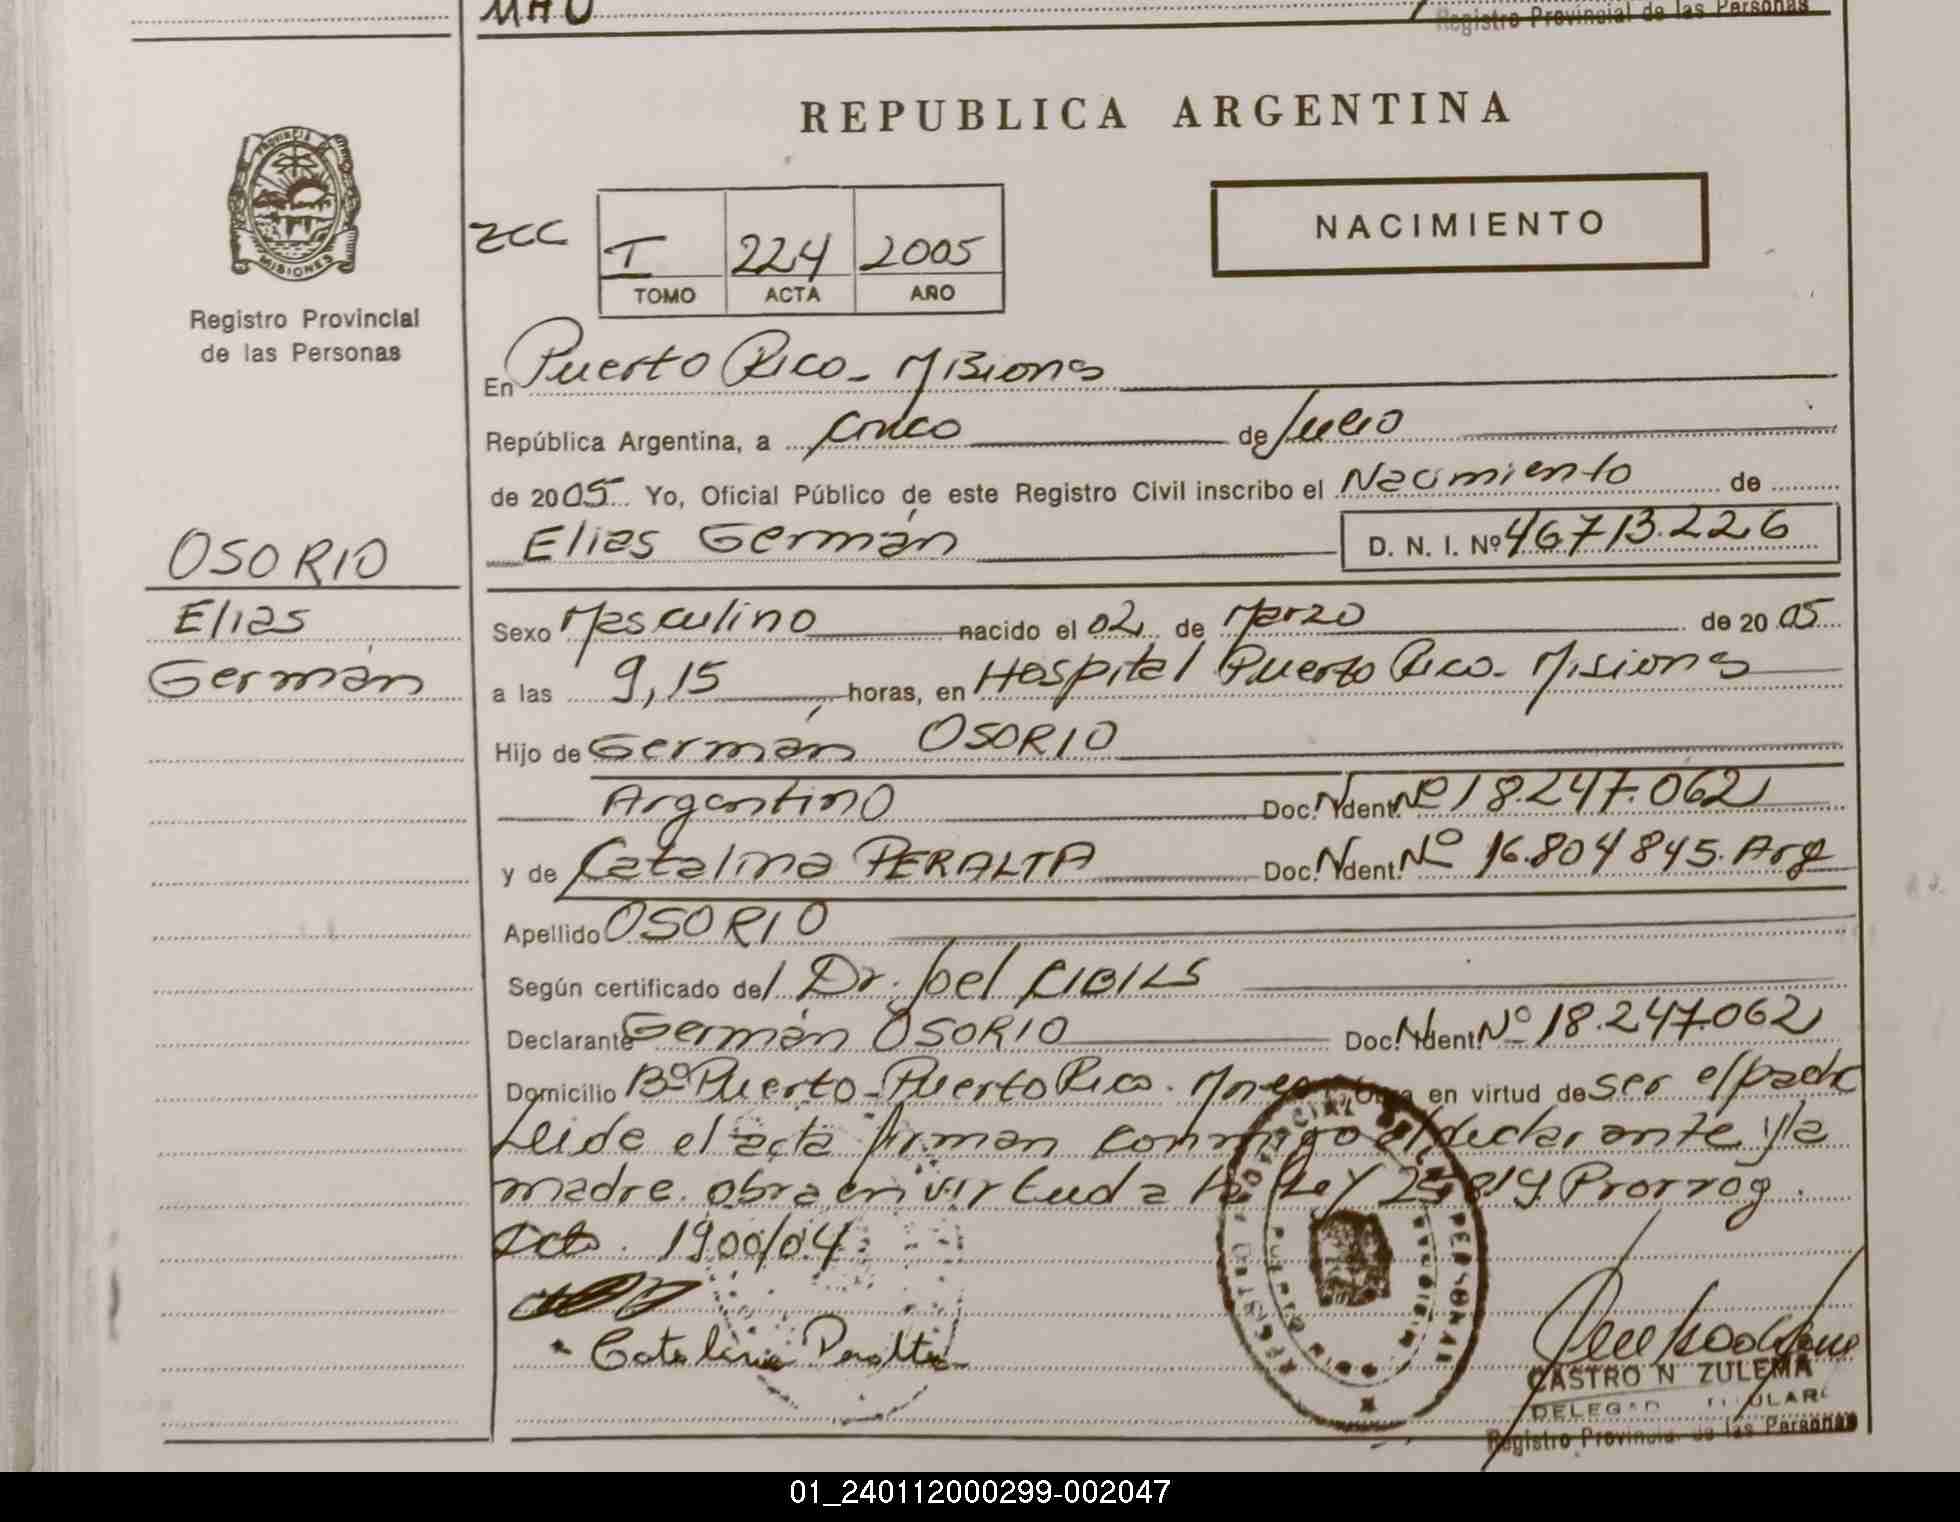 Registro Provincial de las Personas
REPUBLICA ARGENTINA
PROVINCIA DE
MISIONES
Registro Provincial
de las Personas
ZCC
I 224 2005
TOMO ACTA AÑO
NACIMIENTO
En Puerto Rico - Misiones
República Argentina, a cinco de Julio
de 2005 Yo, Oficial Público de este Registro Civil inscribo el Nacimiento de
Elias Germán D. N. I. Nº 46713.226
OSORIO
Elias
Germán
Sexo Masculino nacido el 02 de Marzo de 2005
a las 9,15 horas, en Hospital Puerto Rico - Misiones
Hijo de Germán OSORIO
Argentino Doc. Ident. Nº 18.247.062
y de Catalina PERALTA Doc. Ident. Nº 16.804845. Arg
Apellido OSORIO
Según certificado del Dr. Joel CIBILS
Declarante Germán OSORIO Doc. Ident. Nº 18.247.062
Domicilio Bº Puerto - Puerto Rico. Mnes Obra en virtud de ser el padre
Leida el acta firman conmigo el declarante y la
madre. obra en virtud a la Ley 25819 Prorrog.
Dcto. 1900/04
Catalina Peralta
CASTRO N ZULEMA
DELEGAD TITULAR
Registro Provincial de las Personas
01_240112000299-002047